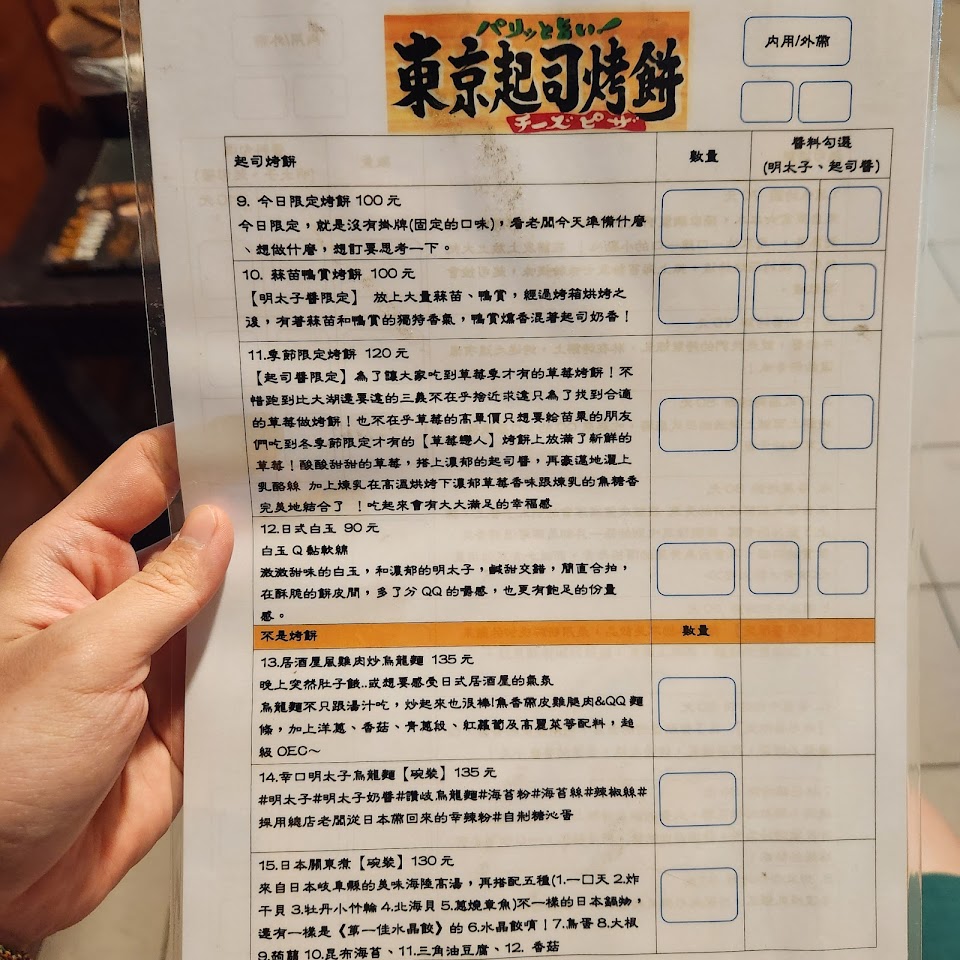 パリッと旨い！
東京起司烤餅
チーズピザ
內用/外帶
起司烤餅
數量
醬料勾選
(明太子、起司醬)
9. 今日限定烤餅 100 元
今日限定，就是沒有掛牌(固定的口味)，看老闆今天準備什麼
、想做什麼，想訂要思考一下。
10. 蒜苗鴨賞烤餅 100 元
【明太子醬限定】 放上大量蒜苗、鴨賞，經過烤箱烘烤之
後，有著蒜苗和鴨賞的獨特香氣，鴨賞燻香混著起司奶香！
11.季節限定烤餅 120 元
【起司醬限定】為了讓大家吃到草莓季才有的草莓烤餅！不
惜跑到比大湖還要遠的三義不在乎捨近求遠只為了找到合適
的草莓做烤餅！也不在乎草莓的高單價只想要給苗栗的朋友
們吃到冬季節限定才有的【草莓戀人】烤餅上放滿了新鮮的
草莓！酸酸甜甜的草莓，搭上濃郁的起司醬，再豪邁地灑上
乳酪絲 加上煉乳在高溫烘烤下濃郁草莓香味跟煉乳的焦糖香
完美地結合了 ！吃起來會有大大滿足的幸福感
12.日式白玉 90 元
白玉Ｑ黏軟綿
激激甜味的白玉，和濃郁的明太子，鹹甜交錯，簡直合拍，
在酥脆的餅皮間，多了分 QQ 的嚼感，也更有飽足的份量
感。
不是烤餅
數量
13.居酒屋風雞肉炒烏龍麵 135 元
晚上突然肚子餓..或想要感受日式居酒屋的氣氛
烏龍麵不只跟湯汁吃，炒起來也很棒!焦香帶皮雞腿肉&QQ 麵
條，加上洋蔥、香菇、青蔥段、紅蘿蔔及高麗菜等配料，超
級 OEC～
14.辛口明太子烏龍麵【碗裝】135 元
#明太子#明太子奶醬#讚岐烏龍麵#海苔粉#海苔絲#辣椒絲#
採用總店老闆從日本帶回來的辛辣粉#自制糖沁蛋
15.日本關東煮【碗裝】130 元
來自日本岐阜縣的美味海陸高湯，再搭配五種(1.一口天 2.炸
干貝 3.牡丹小竹輪 4.北海貝 5.蔥燒章魚)不一樣的日本鍋物，
還有一樣是《第一佳水晶餃》的 6.水晶餃唷！7.鳥蛋 8.大根
9.蒟蒻 10.昆布海苔、11.三角油豆腐、12. 香菇